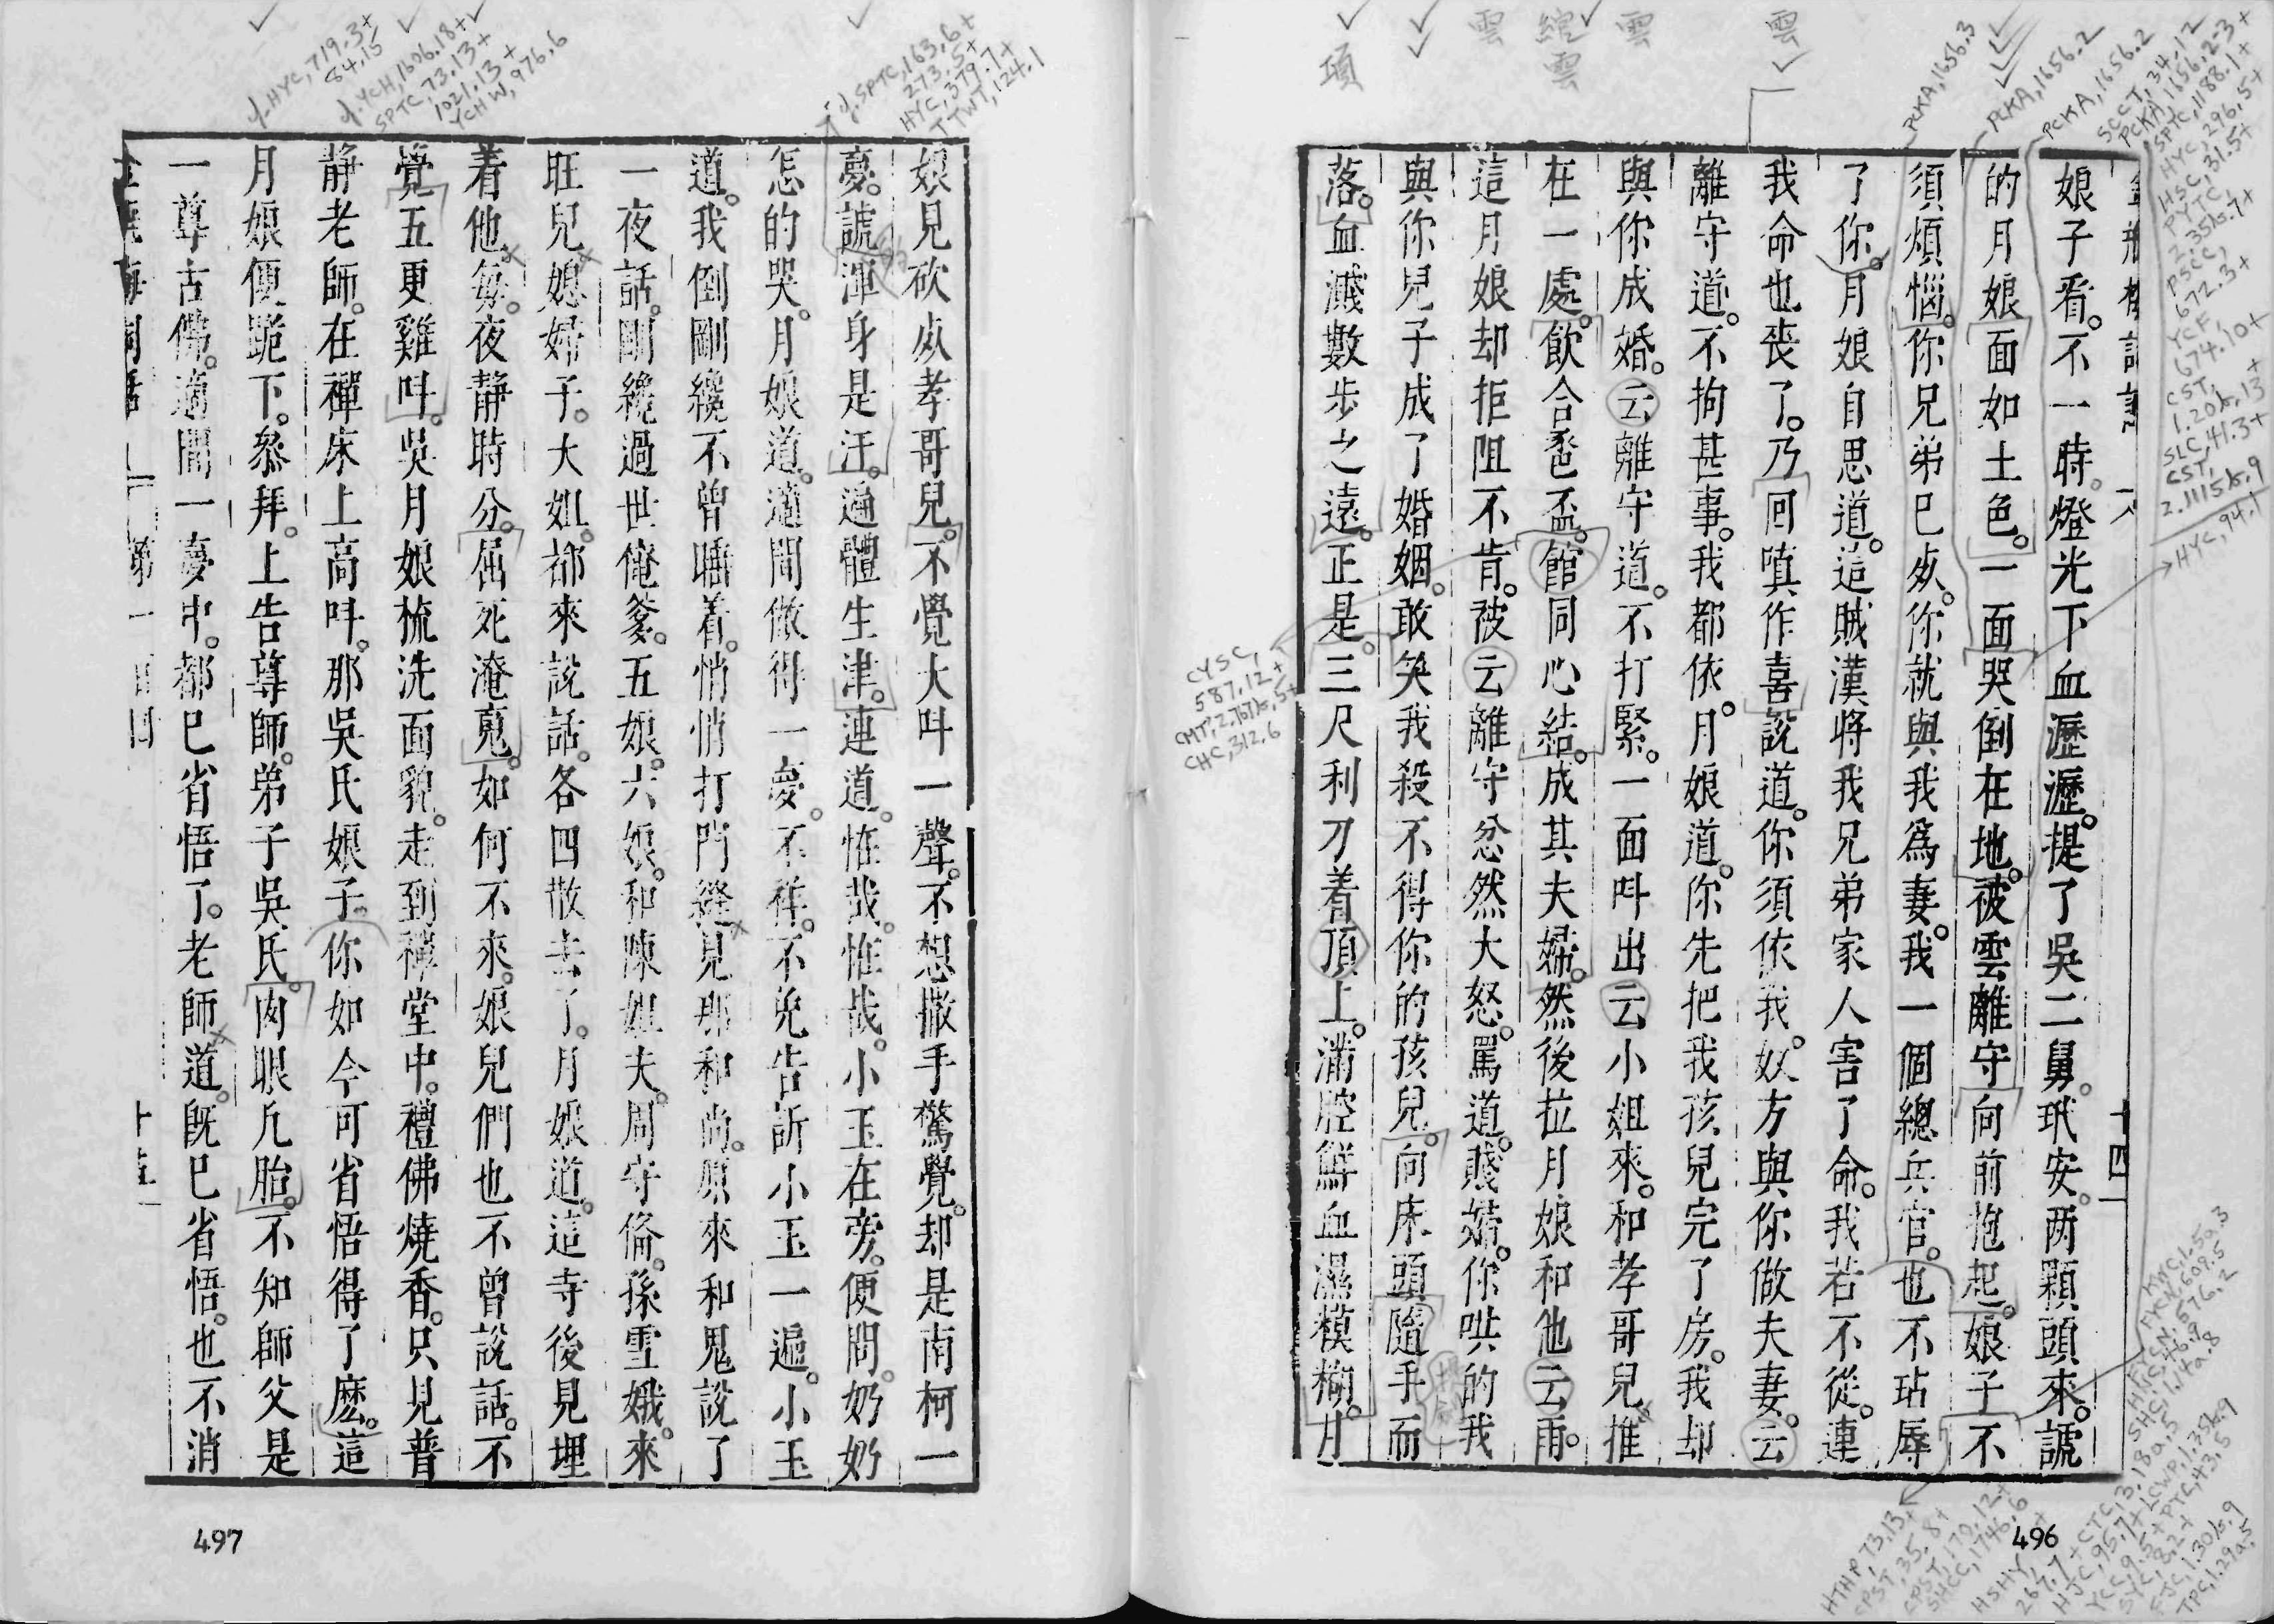 娘子看。不一時。燈光下血瀝瀝。提了吳二舅。玳安。两顆頭來。諕
的月娘面如土色。一面哭倒在地。被雲離守向前抱起。娘子不
須煩惱。你兄弟已死。你就與我爲妻。我一個總兵官。也不玷辱
了你。月娘自思道。這賊漢將我兄弟家人害了命。我若不從。連
我命也丧了。乃回嗔作喜說道。你須依我。奴方與你做夫妻。云
離守道。不拘甚事。我都依。月娘道。你先把我孩兒完了房。我却
與你成婚。云離守道。不打緊。一面呌出云小姐來。和孝哥兒推
在一處。飲合卺盃。館同心結。成其夫婦。然後拉月娘和他云雨。
這月娘却拒阻不肯。被云離守忿然大怒。罵道。賤婦。你哄的我
與你兒子成了婚姻。敢笑我殺不得你的孩兒。向床頭隨手而
落。血濺數步之遠。正是。三尺利刀着頂上。滿腔鮮血濕模糊。月
十四
496
雲
雲
綰雲
雲
項
PCKA, 1656.3
PCKA, 1656.2
PCKA, 1656.2
SCCT, 34.12
PCKA, 1656.2-3+
SPTC, 1188.1+
HYC, 296.5+
HSC, 31.5+
PYTC,
2.35b.7+
PSCC,
672.3+
YCF,
674.10+
CST,
1.20b.13+
SLC, 41.3+
CST,
2.1115b.9
HYC, 94.1
CYSC,
587.12+
CHC, 312.6
娘見砍死孝哥兒。不覺大呌一聲。不想撒手驚覺。却是南柯一
夢。諕渾身是汗。遍體生津。連道。怪哉。怪哉。小玉在旁。便問。奶奶
怎的哭。月娘道。適間做得一夢。不祥。不免告訴小玉一遍。小玉
道。我倒剛纔不曾睡着。悄悄打門縫見那和尚。原來和鬼說了
一夜話。剛纔過世俺爹。五娘。六娘。和陳姐夫。周守備。孫雪娥。來
旺兒媳婦子。大姐。都來說話。各四散去了。月娘道。這寺後見埋
着他每。夜靜時分。屈死淹䰟。如何不來。娘兒們也不曾說話。不
覺五更雞呌。吳月娘梳洗面貌。走到禪堂中。禮佛燒香。只見普
靜老師。在禪床上高呌。那吳氏娘子。你如今可省悟得了麽。這
月娘便跪下。叅拜。上告尊師。弟子吳氏。肉眼凡胎。不知師父是
一尊古佛。適間一夢中。都已省悟了。老師道。既已省悟。也不消
497
HYC, 719.3+
84.15
YCH, 1606.18+
SPTC, 73.13+
1021.13+
YCHW, 976.6
SPTC, 163.6+
273.5+
HYC, 379.7+
TTWT, 124.1